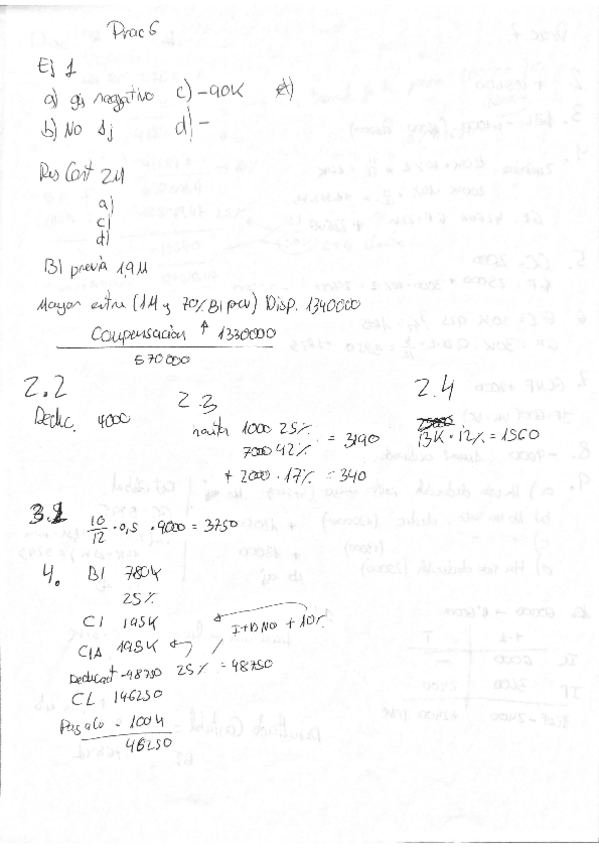 Prac 6
Ej 1
a) gs negativo c) -90K e)
b) No Aj d) -
Res Cont 2M
a)
c)
d)
BI previa 1'9M
Mayor entre (1M y 70% BI prev) Disp. 1340000
Compensación ↑ 1330000
570000
2.2 2.3 2.4
Deduc. 4000
hasta 1000 25%
7000 42% = 3190
+ 2000 · 17% = 340
13K · 12% = 1560
3.1 10/12 · 0,5 · 9000 = 3750
4. BI 780K
25%
CI 195K I+D NO + 10%
CIA 195K
Deducact -48750 25% = 48750
CL 146250
Pag a Cto - 100K
46250